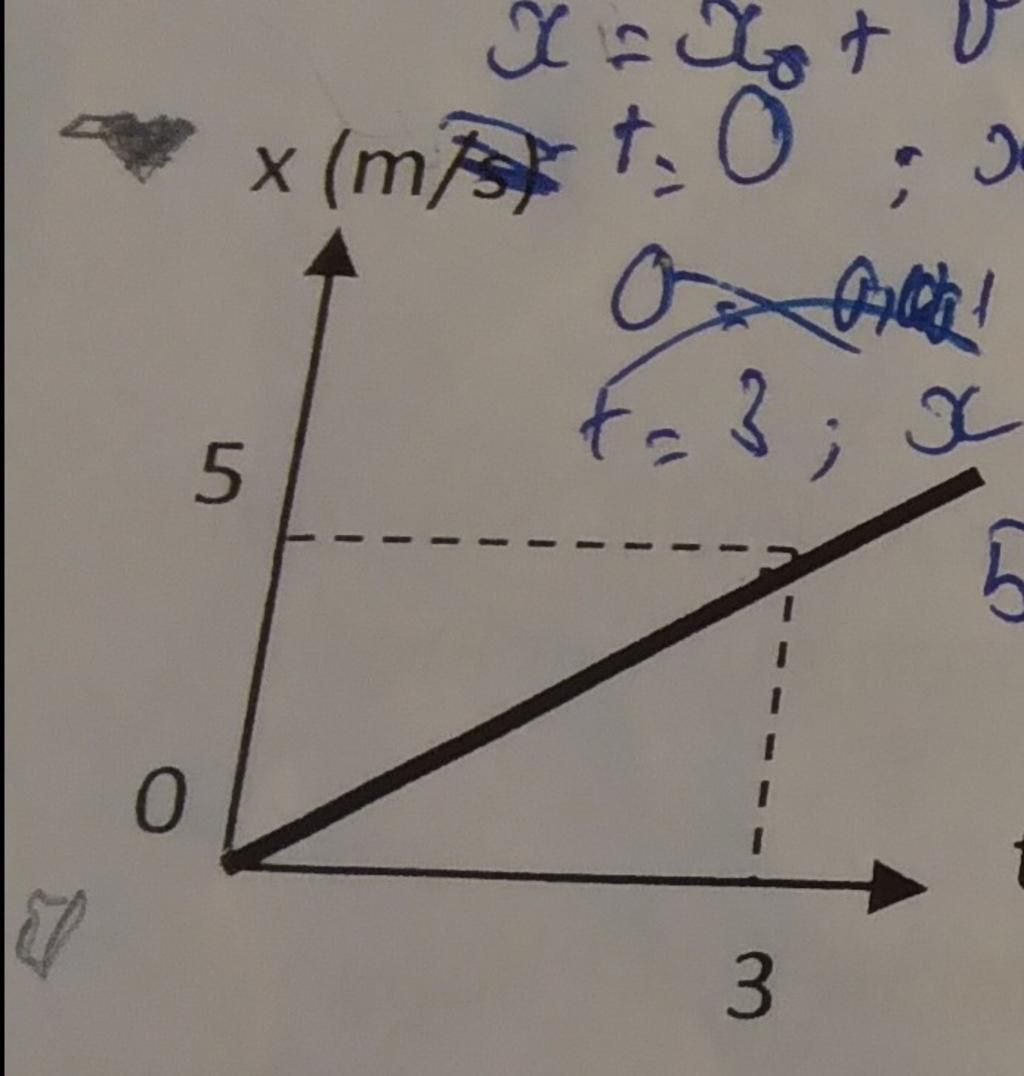 x = x₀ + v
x (m/s) t = 0 ; x
0 =
t = 3 ; x
5
5
0
t
3